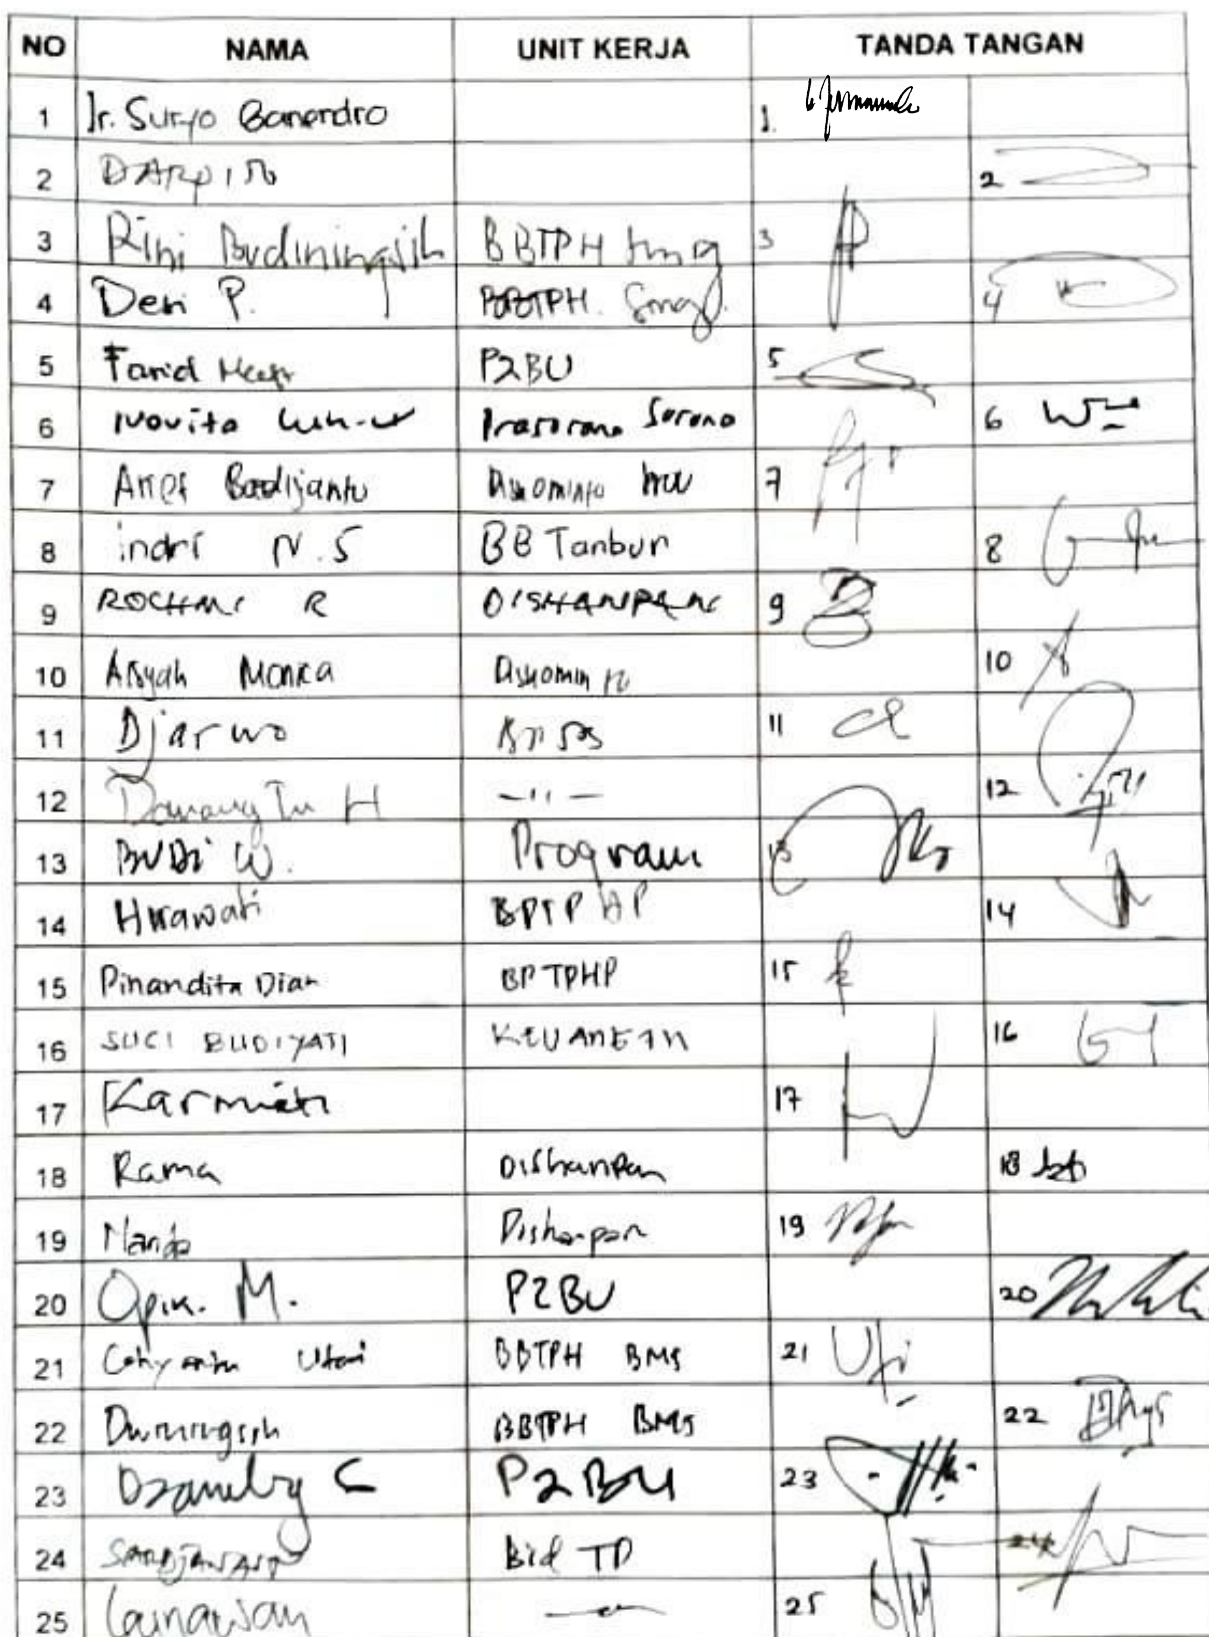 NO NAMA UNIT KERJA TANDA TANGAN
1 Ir. Suryo Banendro 1.
2 DARPIN 2
3 Rini Budiningsih BBTPH Smg 3
4 Deni P. BBTPH. Smg 4
5 Farid P2BU 5
6 Novita Prasarana Sarana 6
7 Arief Boedijanto 7
8 indri N.S BB Tanbun 8
9 ROCHMI R DISHANPAN 9
10 Aisyah Monica 10
11 Djarwo 11
12 Danang H —11— 12
13 BUDi W. Program 13
14 Hirawati BPTPHP 14
15 Pinandita Dian BPTPHP 15
16 SUCI BUDIYATI KEUANGAN 16
17 Karmiati 17
18 Rama Dishanpan 18
19 Nanda Dishanpan 19
20 Opik. M. P2BU 20
21 Utami BBTPH BMS 21
22 BBTPH BMS 22
23 C P2BU 23
24 Bid TP 24
25 Gunawan 25